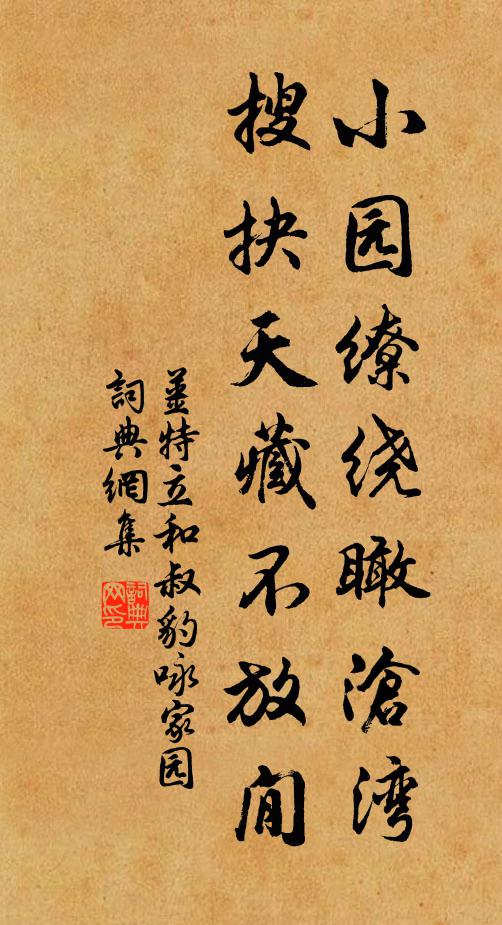 小园缭绕瞰滄湾
搜抉天藏不放閒
姜特立和叔豹咏家园
詞典網集
詞典
网印